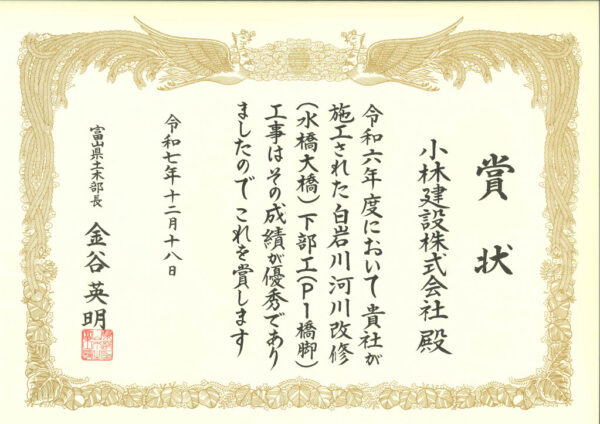 賞状
小林建設株式会社 殿
令和六年度において貴社が
施工された白岩川河川改修
(水橋大橋)下部工(P1橋脚)
工事はその成績が優秀であり
ましたのでこれを賞します
令和七年十二月十八日
富山県土木部長 金谷英明